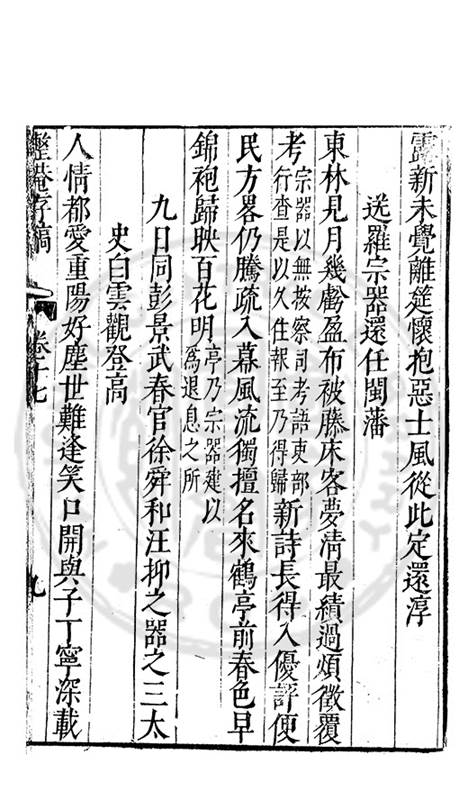 露新未覺離筵懷抱惡士風從此定還淳
送羅宗器還任閩藩
東林見月幾虧盈布被藤床客夢清最績過煩徵覆
考宗器以無按察司考語吏部行查是以久住報至乃得歸新詩長得入優評便
民方畧仍騰疏入幕風流獨擅名來鶴亭前春色早
錦袍歸映百花明亭乃宗器建以為退息之所
九日同彭景武春官徐舜和汪抑之器之三太
史白雲觀登高
人情都愛重陽好塵世難逢笑口開與子丁寧深載
整菴存稿
卷十七
九